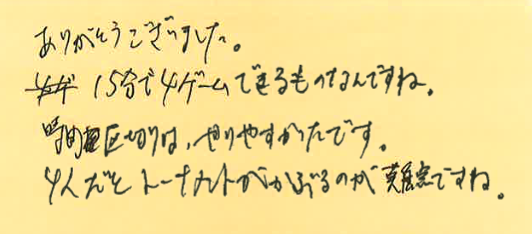 ありがとうございました。
15分で4ゲームできるものなんですね。
時間区切りは、やりやすかったです。
4人だとトーナメントがかぶるのが難点ですね。